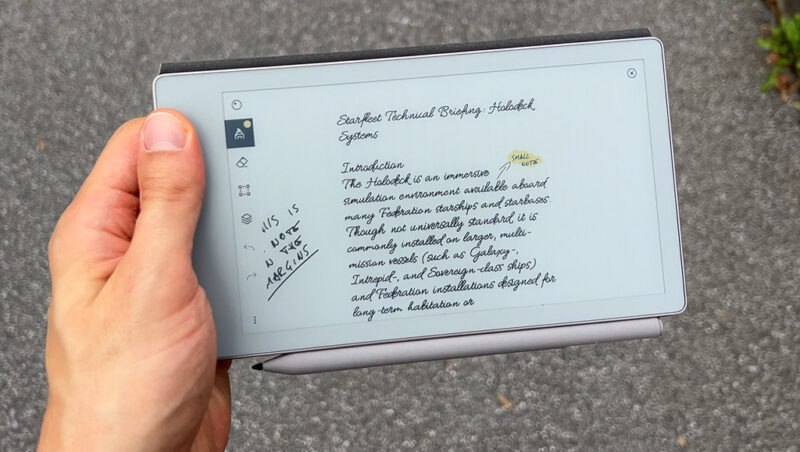 Starfleet Technical Briefing: Holodeck
Systems
Introduction
The Holodeck is an immersive
simulation environment available aboard
many Federation starships and starbases.
Though not universally standard, it is
commonly installed on larger, multi-
mission vessels (such as Galaxy-,
Intrepid-, and Sovereign-class ships)
and Federation installations designed for
long-term habitation or
SMALL
NOTE
IS
NOTE
THE